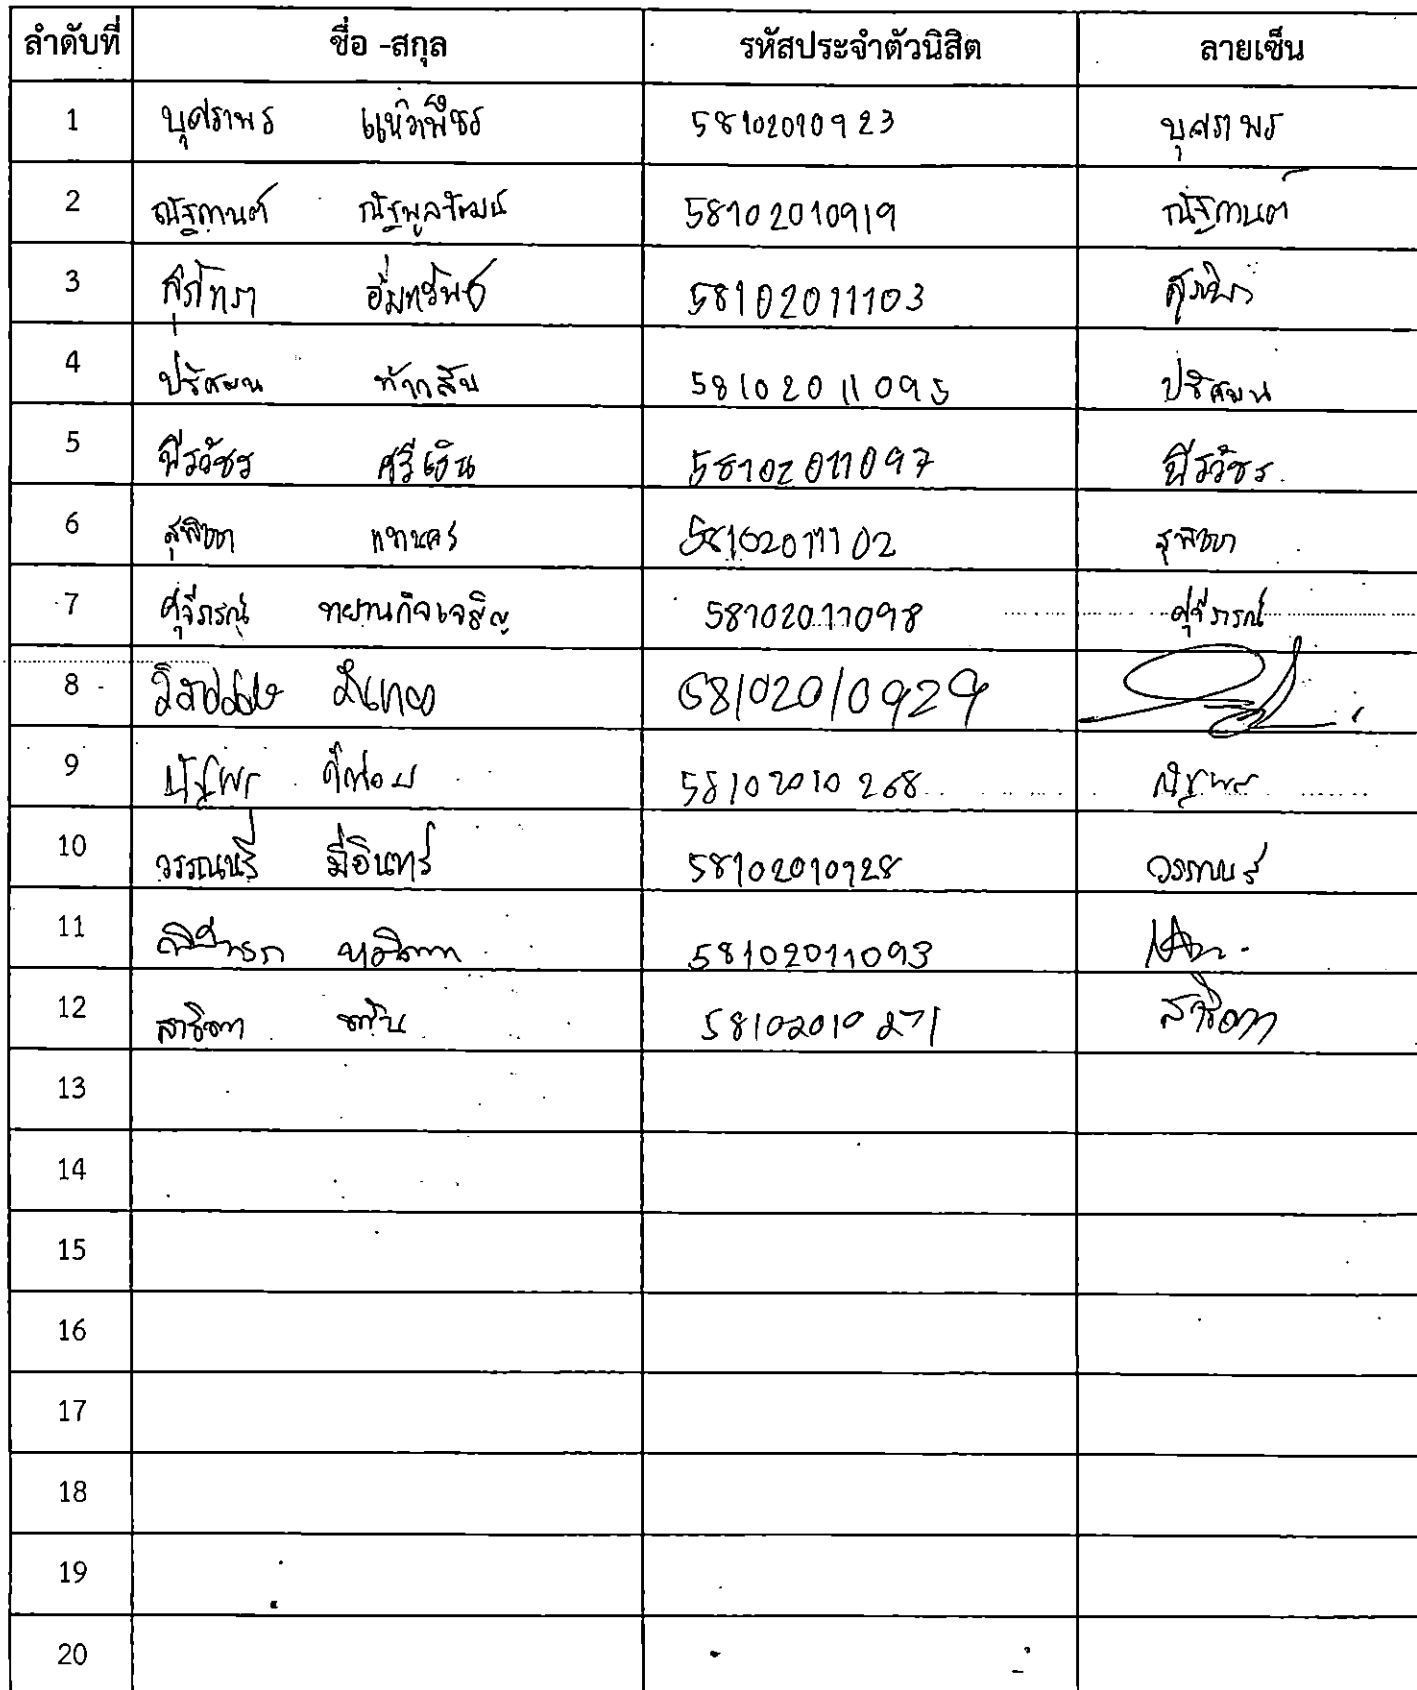 ลำดับที่ ชื่อ -สกุล รหัสประจำตัวนิสิต ลายเซ็น
1 บุศราพร แห้วเพ็ชร 58102010923 บุศราพร
2 ณัฐกานต์ ณัฐพูลวัฒน์ 58102010919 ณัฐกานต์
3 สุภัทรา อิ่มทรัพย์ 58102011103
4 ปริศนา 58102011095
5 พีรวัชร ศรีเงิน 58102011097 พีรวัชร
6 สุพิชชา 58102011102 สุพิชชา
7 ศุจีภรณ์ ทยานกิจเจริญ 58102011098 ศุจีภรณ์
8 58102010929
9 ณัฐพร 58102010268 ณัฐพร
10 วรรณนรี มีอินทร์ 58102010928 วรรณนรี
11 58102011093
12 สาริตา 58102010271 สาริตา
13
14
15
16
17
18
19
20